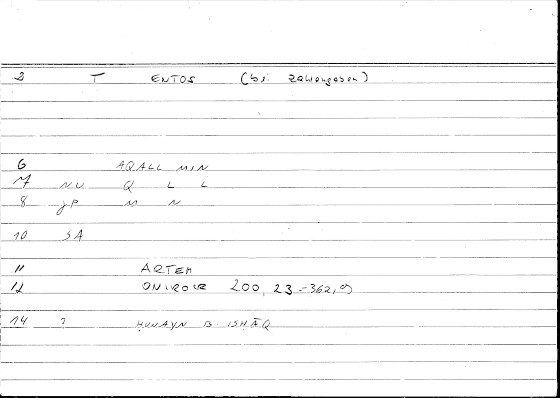 3 T ENTOS (bei Zahlangaben)
6 AQALL MIN
7 NU Q L L
8 JP M N
10 SA
11 ARTEM
12 ONIROCR 200, 23-362,9
14 ? ḤUNAYN B ISḤĀQ